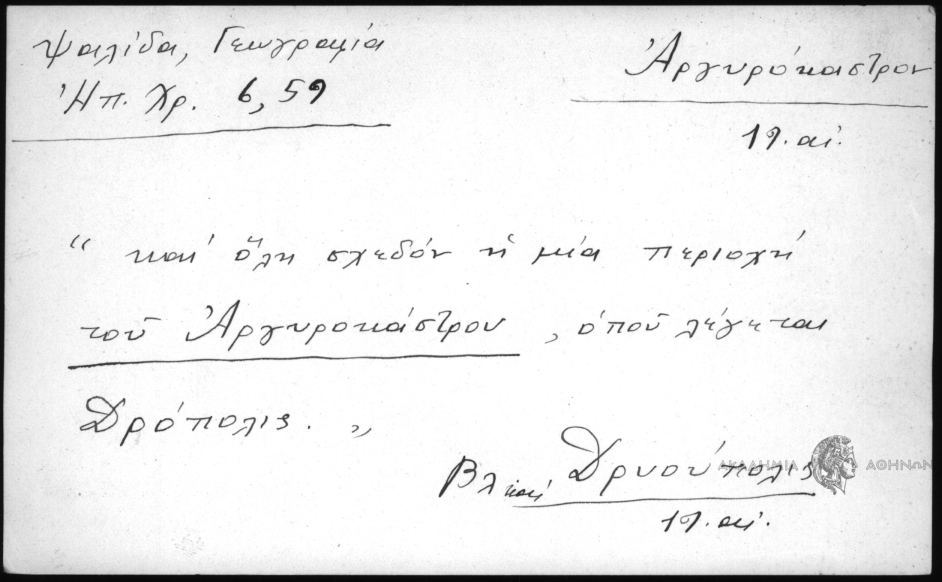 Ψαλίδα, Γεωγραφία
Ἠπ. Χρ. 6, 59
Ἀργυρόκαστρον
19. αἰ.
“ καὶ ὅλη σχεδόν ἡ μία περιοχή
τοῦ Ἀργυροκάστρου, ὁποῦ λέγεται
Δρόπολις. „
Βλ καὶ Δρυούπολις
19. αἰ.
ΑΚΑΔΗΜΙΑ ΑΘΗΝΩΝ